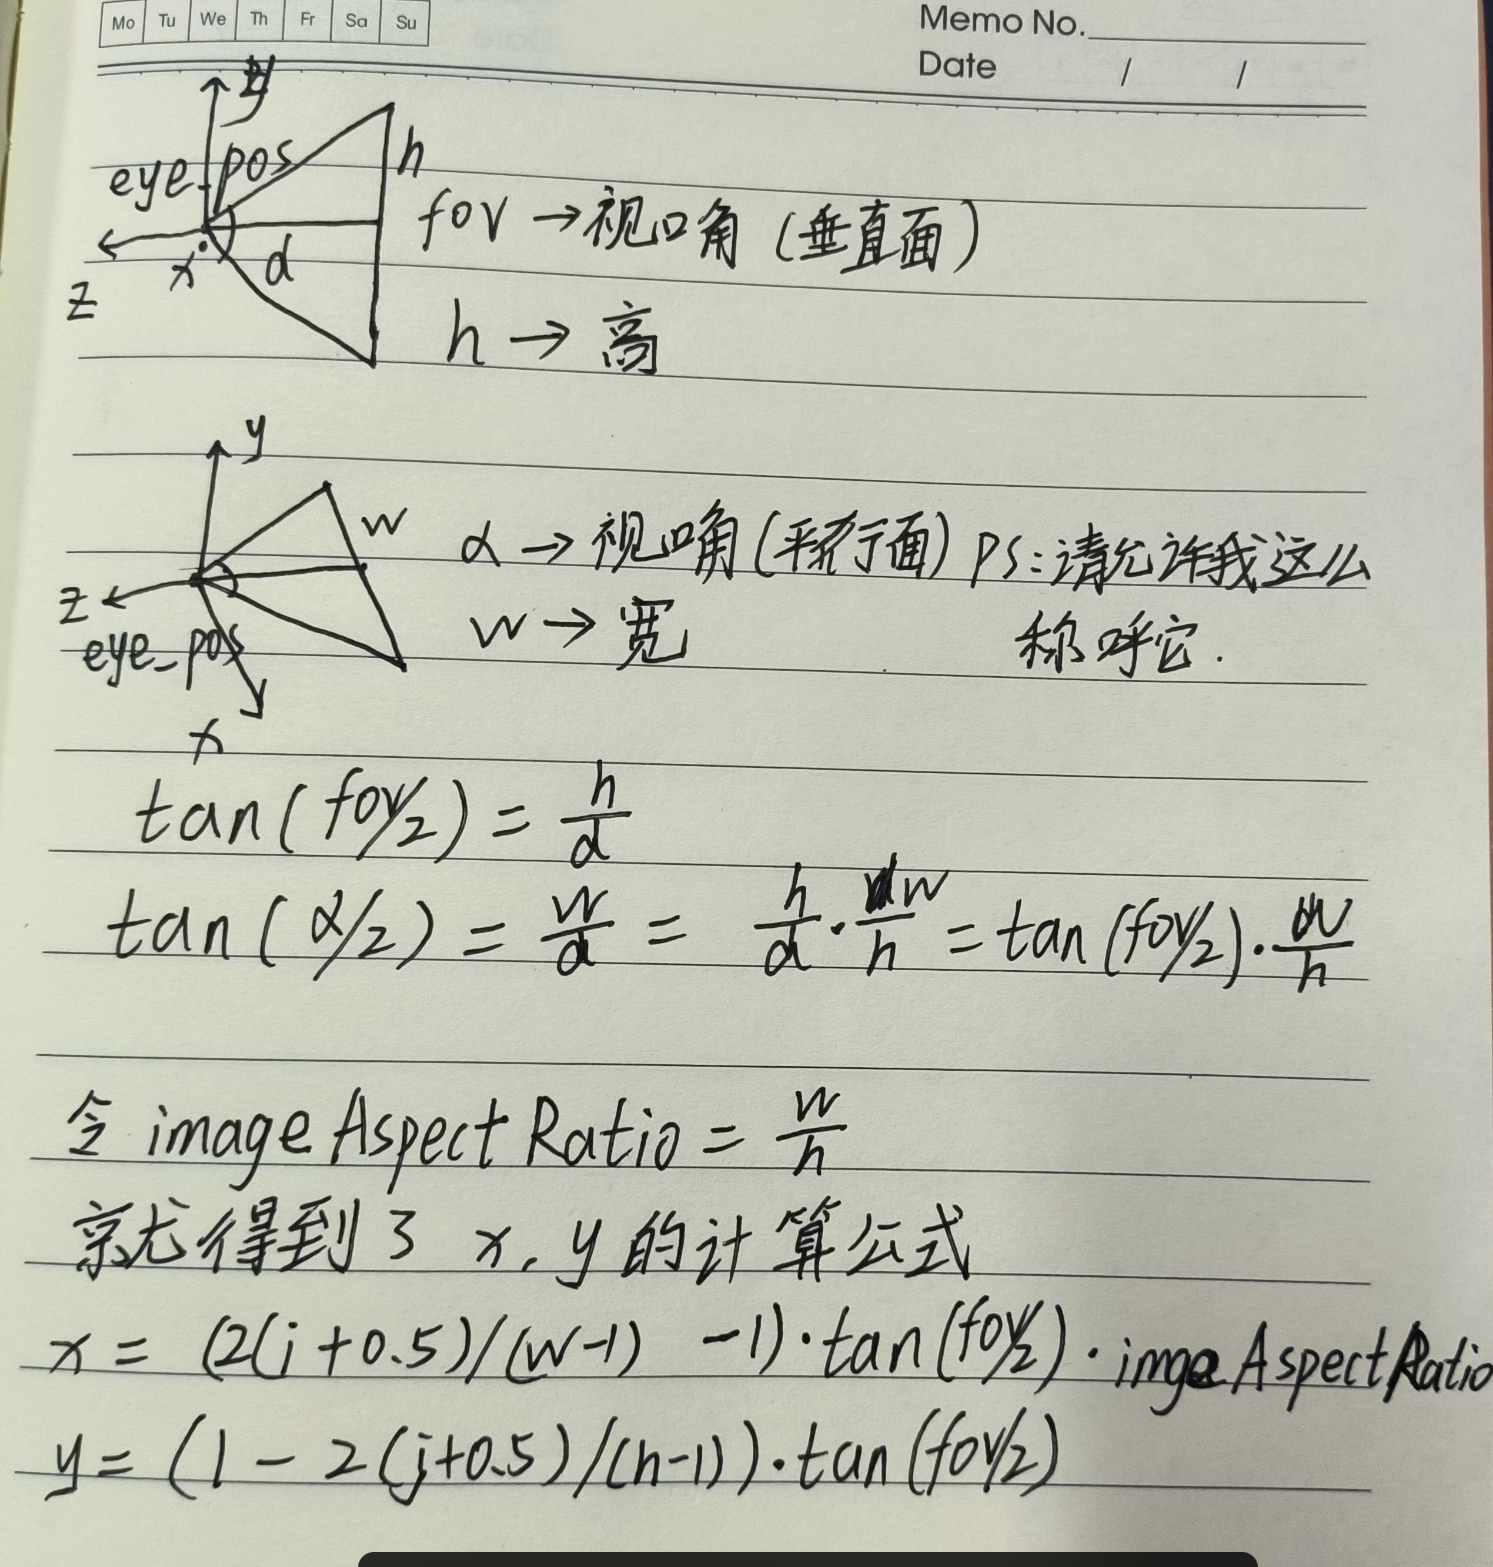 Mo Tu We Th Fr Sa Su
Memo No.
Date / /
y
eye_pos
h
fov → 视口角 (垂直面)
x
d
z
h → 高
y
w
α → 视口角 (平行面) PS: 请允许我这么
称呼它.
z
eye_pos
w → 宽
x
tan(fov/2) = h/d
tan(α/2) = w/d = h/d · w/h = tan(fov/2) · w/h
令 imageAspectRatio = w/h
就得到了 x, y 的计算公式
x = (2(i+0.5)/(w-1) -1)·tan(fov/2)·imgeAspectRatio
y = (1 - 2(j+0.5)/(h-1))·tan(fov/2)